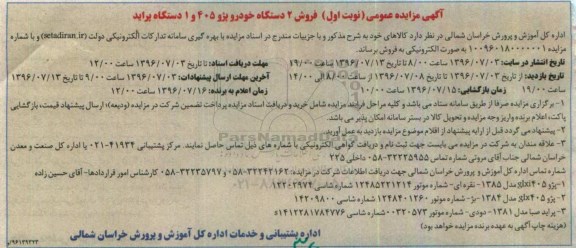 آگهی مزایده عمومی (نوبت اول) فروش ۲ دستگاه خودرو پژو ۴۰۵ و ۱ دستگاه پراید
اداره کل آموزش و پرورش خراسان شمالی در نظر دارد کالاهای خود به شرح مذکور و با جزییات مندرج در اسناد مزایده با بهره گیری سامانه تدارکات الکترونیکی دولت (setadiran.ir) و با شماره
مزایده به صورت الکترونیکی به فروش برساند.
تاریخ انتشار در سایت: ۱۳۹۶/۰۷/۰۳ ساعت ۸/۰۰ تا تاریخ ۱۳۹۶/۰۷/۱۳ ساعت ۱۹/۰۰ مهلت دریافت اسناد: تا تاریخ ۱۳۹۶/۰۷/۰۳ ساعت ۱۲/۰۰
تاریخ بازدید: از تاریخ ۱۳۹۶/۰۷/۰۳ تا تاریخ ۱۳۹۶/۰۷/۰۸ از ساعت ۸/۰۰ الی ۱۴/۰۰ آخرین مهلت ارسال پیشنهادات: ۱۳۹۶/۰۷/۰۳ ساعت ۹/۰۰ تا تاریخ ۱۳۹۶/۰۷/۱۳
ساعت ۱۹/۰۰ زمان بازگشایی: ۱۳۹۶/۰۷/۱۵ ساعت ۱۰/۰۰ زمان اعلام به برنده: ۱۳۹۶/۰۷/۱۶ ساعت ۱۲/۰۰
۱- برگزاری مزایده صرفا از طریق سامانه ستاد می باشد و کلیه مراحل فرآیند مزایده شامل خرید و دریافت اسناد مزایده پرداخت تضمین شرکت در مزایده (ودیعه)؛ ارسال پیشنهاد قیمت، بازگشایی
پاکت، اعلام برنده واریز وجه مزایده و تحویل کالا در بستر سامانه امکان پذیر می باشد.
۲- پیشنهاد می گردد قبل از ارایه پیشنهاد از اقلام موضوع مزایده بازدید به عمل آورید
۳- علاقه مندان به شرکت در مزایده می بایست جهت ثبت نام و دریافت گواهی الکترونیکی با شماره های ذیل تماس حاصل نمایند. مرکز پشتیبانی ۴۱۹۳۴-۰۲۱ یا اداره کل صنعت و معدن
خراسان شمالی جناب آقای مروتی شماره تماس ۳۲۲۳۵۹۵۵-۰۵۸ داخلی ۲۲۵
شماره تماس اداره کل آموزش و پرورش خراسان شمالی جهت دریافت اطلاعات شرکت در مزایده: ۳۲۲۴۲۱۶۲-۰۵۸ و ۳۲۲۳۵۷۹۷-۰۵۸ کارشناس امور قراردادها- آقای حسین زاده
۱- پژو ۴۰۵ glxi مدل ۱۳۸۵- نقره ای- شماره موتور ۱۲۴۸۵۲۲۱۲۱۴ شماره شاسی
۲- پژو ۴۰۵ glx مدل ۱۳۸۴- بژ- شماره موتور ۱۲۴۸۴۰۱۲۶۰ شماره شاسی ۱۴۲۰۹۸۰۰
۳- پراید صبا مدل ۱۳۸۱- دودی- شماره موتور شماره شاسی
(هزینه چاپ آگهی به عهده برنده مزایده خواهد بود)
اداره پشتیبانی و خدمات اداره کل آموزش و پرورش خراسان شمالی